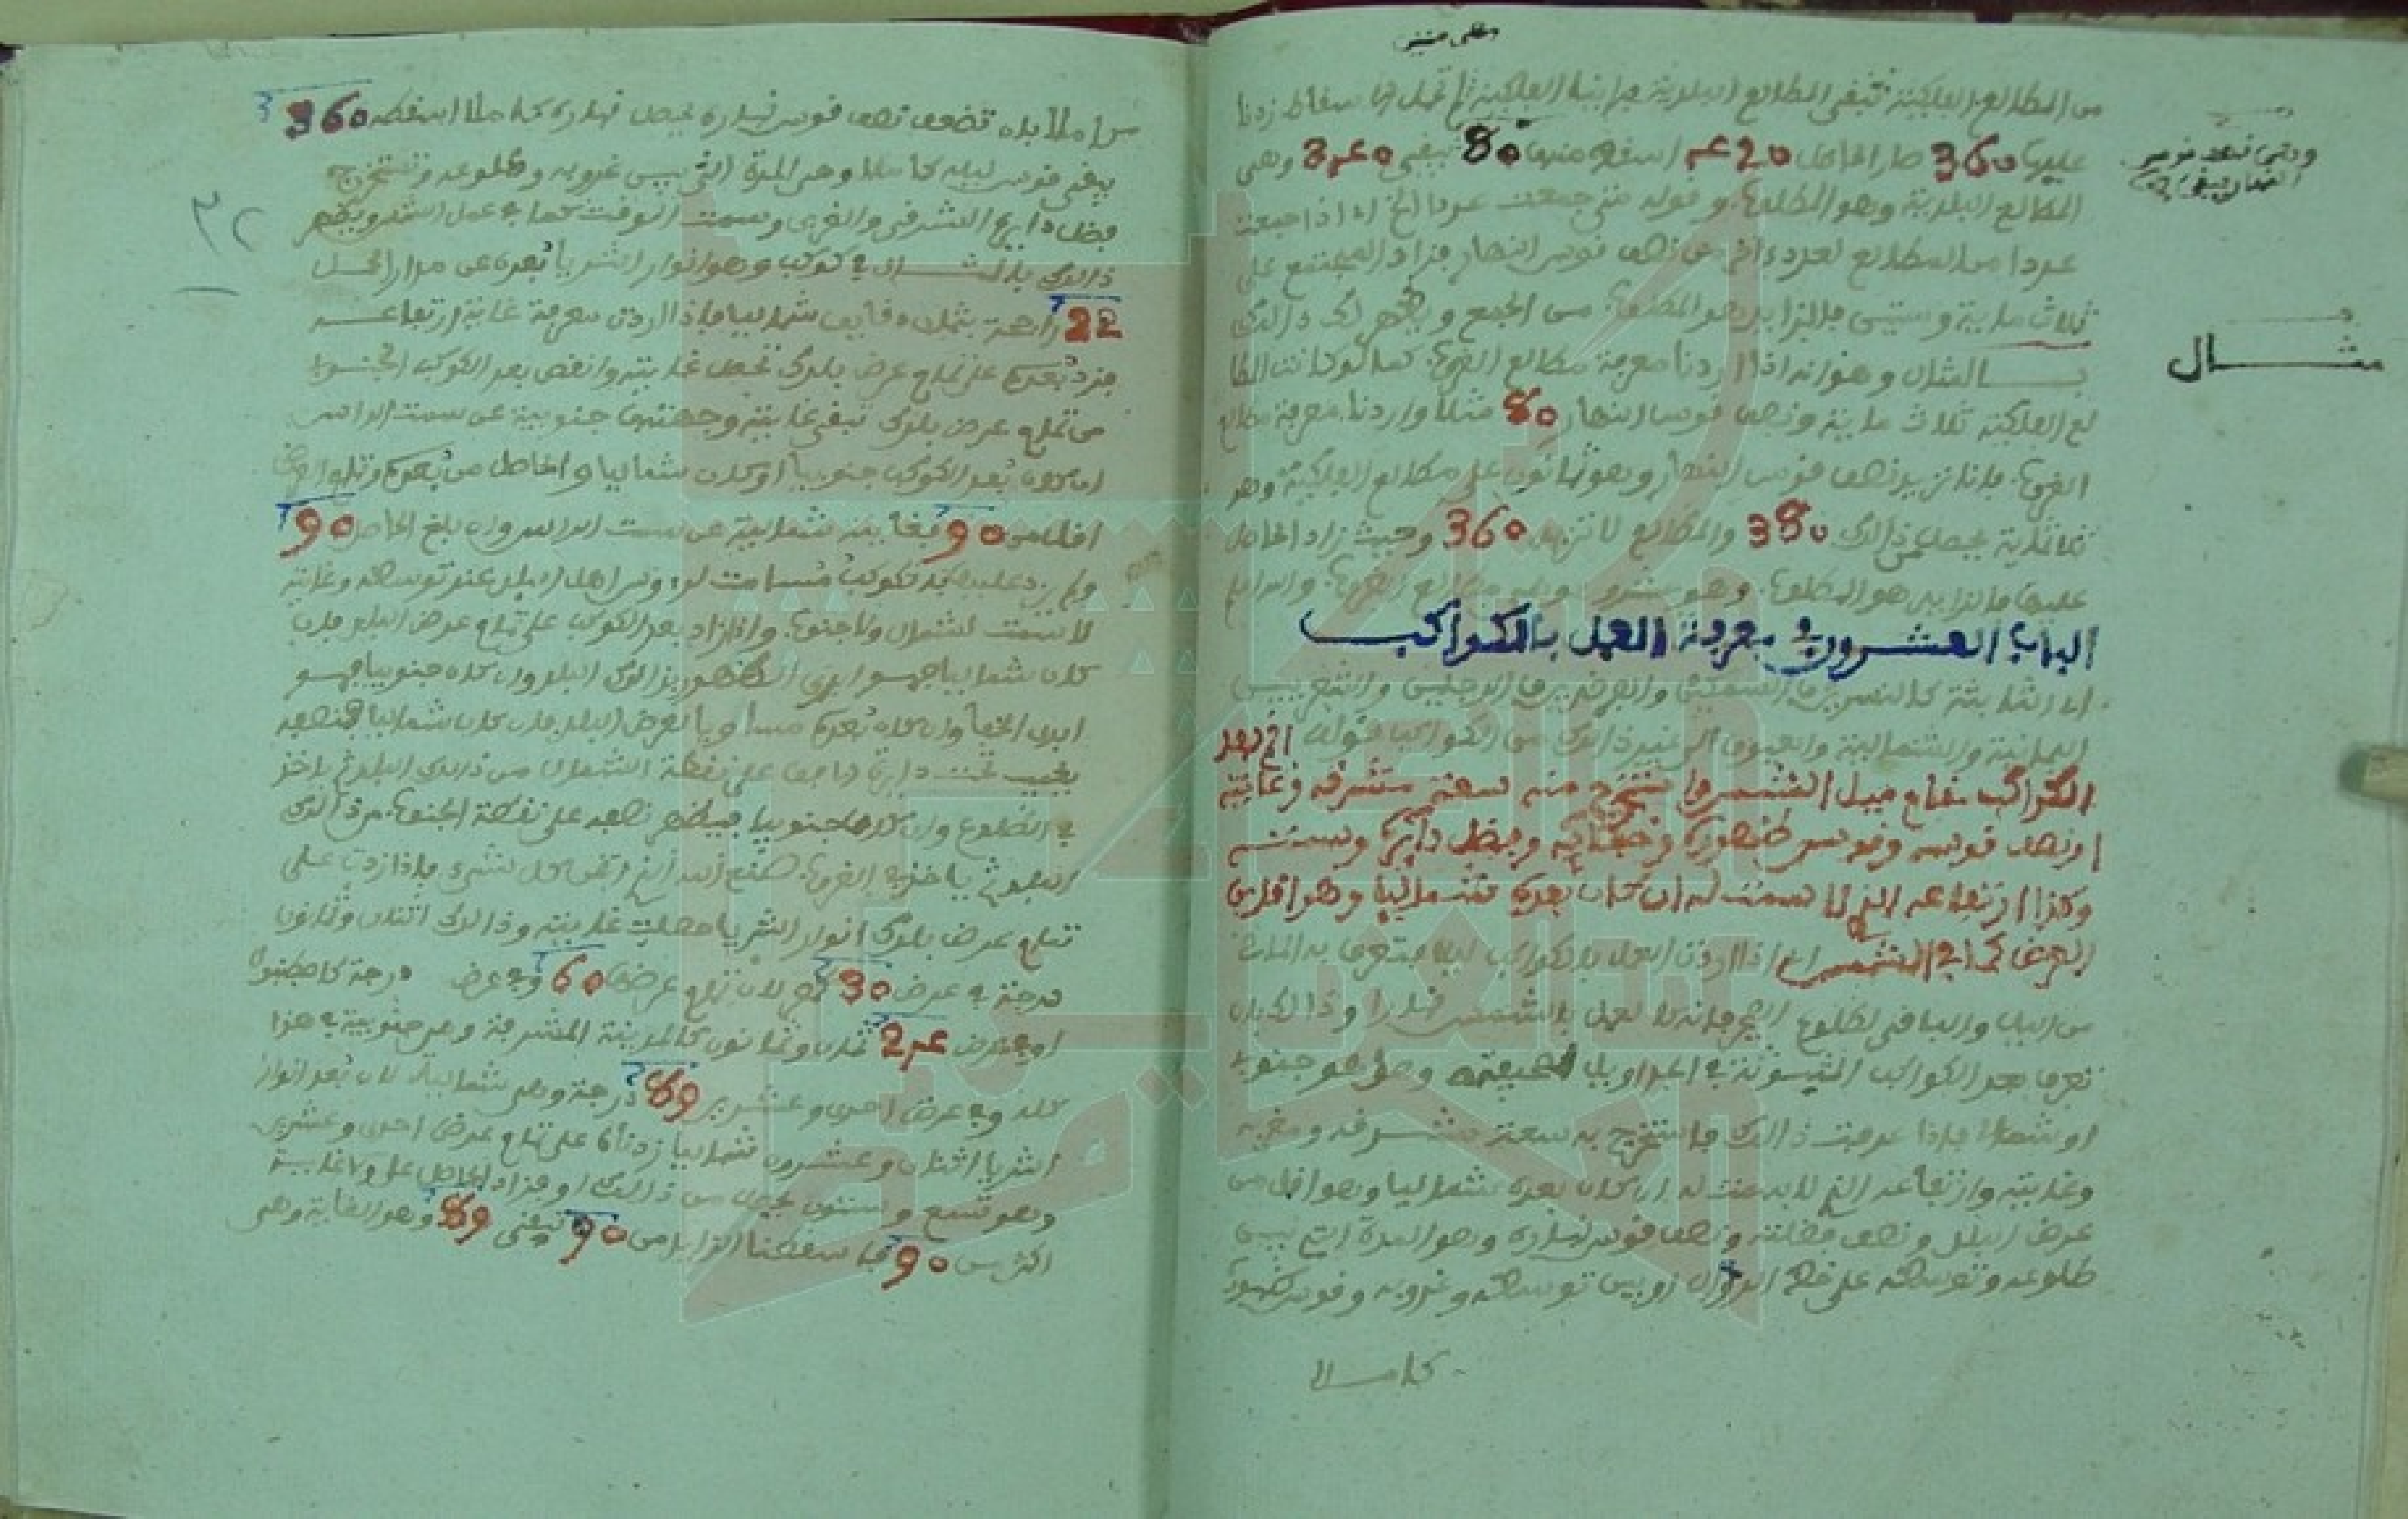 وعلى متنين
من المطالع الفلكية تبقى المطالع البلدية فإن الفلكية لم تحمل الإسقاط زدنا
عليها 360 صار الحاصل 420 اسقط منها 80 يبقى 340 وهي
المطالع البلدية وهو المطلوب وقوله متى جمعت عددا الخ أي إذا جمعت
عددا من المطالع لعدد اخر من نصف قوس النهار فزاد المجتمع على
ثلاث مائة وستين فالزايد هو المطلوب من الجمع ويظهر لك ذالك
بالمثال وهو انه اذا اردنا معرفة مطالع الغروب كما لو كانت المطا
لع الفلكية ثلاث ماية ونصف قوس النهار 80 مثلا واردنا معرفة مطالع
الغروب فانا نزيد نصف قوس النهار وهو ثمانون على مطالع الفلكية وهو
ثلاثماية يحصل من ذالك 380 والمطالع لا تزيد 360 وحيث زاد الحاصل
عليها فالزايد هو المطلوب وهو عشرون وهو مطالع الغروب والله اعلم
الباب العشرون في معرفة العمل بالكواكب
اي الثابتة كالنسرين والسماكين والفرقدين والرجلين والشعريين
اليمانية والشمالية والعيوق الى غير ذالك من الكواكب قوله اقم بعد
الكواكب مقام ميل الشمس واستخرج منه سعة مشرقه وغايته
ونصف قوسه وقوس ظهوره وخفائه وفضل دايره وسمته
وكذا ارتفاعه الذي لا سمت له ان كان بعده شماليا وهو اقل من
العرض كما في الشمس اي اذا اردت العمل بالكواكب ليلا لتعرف به الماضي
من الليل والباقي لطلوع الفجر فانه كالعمل بالشمس نهارا وذالك بان
تعرف بعد الكواكب المثبوتة في الجداويل الصحيحة وهل هو جنوبا
او شمالا فاذا عرفت ذالك فاستخرج به سعة مشرقه ومغربه
وغايته وارتفاعه الذي لا سمت له ان كان بعده شماليا وهو اقل من
عرض البلد ونصف فضلته ونصف قوس نهاره وهو المدة التي بين
طلوعه وتوسطه على خط الزوال او بين توسطه وغروبه وقوس ظهوره
كاملا
ونصف قوس
النهار يبقى
مثال
من املا بان تضعف نصف قوس نهاره يحصل نهاره كاملا اسقطه 360
يبقى قوس ليله كاملا وهي المدة التي بين غروبه وطلوعه وتستخرج
فضل دايره الشرقي والغربي وسمت الوقت كما في عمل الشمس ويظهر
ذالك بالمثال في كوكب وهو انور الثريا بعده عن مدار الحمل
22 درجة بثمان دقايق شماليا فاذا اردت معرفة غاية ارتفاعه
فزد بعده على تمام عرض بلدك تحصل غايته وانقص بعد الكوكب الجنوبي
من تمام عرض بلدك تبقى غايته وجهتها جنوبية عن سمت الراس
ان كان بعد الكوكب جنوبيا او كان شماليا والحاصل من بعده وتمام العرض
اقل من 90 فغايته شمالية عن سمت الراس وان بلغ الحاصل 90
ولم يزد عليه فذا الكوكب مسامت لرءوس اهل البلد عند توسطه وغايته
لا تنسب لشمال ولا جنوب واذا زاد بعد الكوكب على تمام عرض البلد فان
كان شماليا فهو ابدي الظهور بذالك البلد وان كان جنوبيا فهو
ابدي الخفا وان كان بعده مساويا لعرض البلد فان كان شماليا فنصفه
يغيب تحت دايرة الافق على نقطة الشمال من ذالك البلد ثم ياخذ
في الطلوع وان كان جنوبيا فيظهر نصفه على نقطة الجنوب من ذالك
البلد ثم ياخذ في الغروب صنع الله الذي اتقن كل شيء فاذا زدت على
تمام عرض بلدك انور الثريا حصلت غايته وذالك اثنان وثمانون
درجة في عرض 30 كمصر لان تمام عرضها 60 وفي عرض درجة كاصطنبول
او في عرض 24 ثمان وثمانون كالمدينة المشرفة وهي جنوبية في هذا
كله وفي عرض احدى وعشرين 89 درجة وهي شمالية لان بعد انوار
الثريا اثنان وعشرون شماليا زدناه على تمام عرض احدى وعشرين
وهو تسع وستون يحصل من ذالك 91 فزاد الحاصل على ولا غاية
اكثر من 90 فاسقطنا الزايد من 90 يبقى 89 وهو الغاية وهي
٣٢